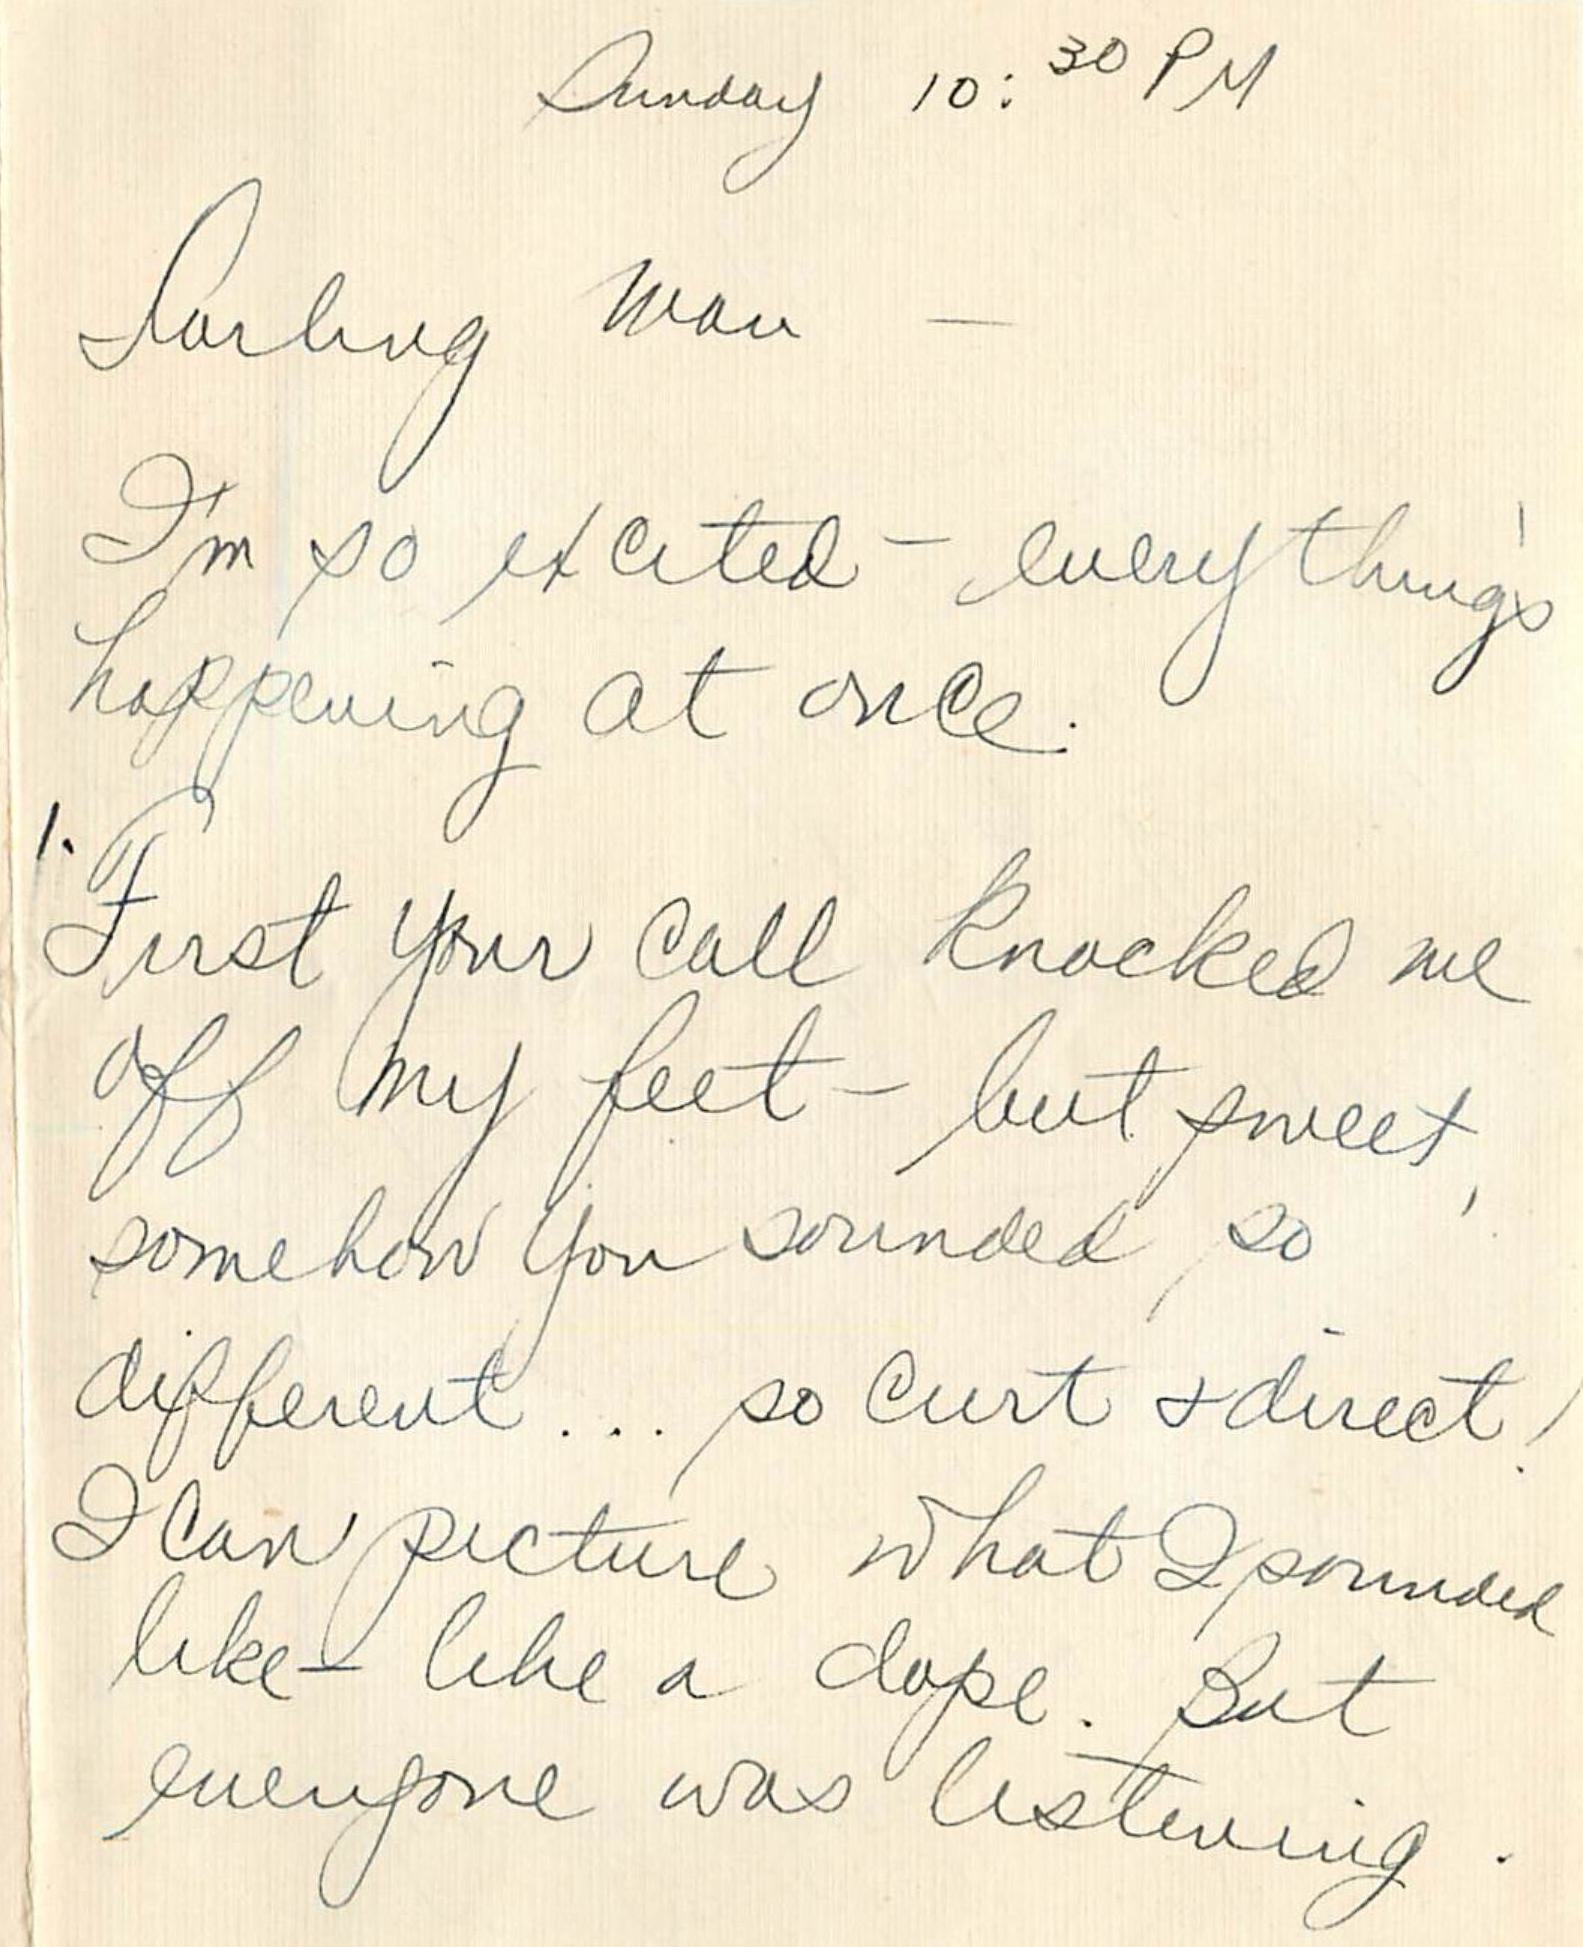 Sunday 10:30 PM
Darling Man —
I'm so excited — everything's
happening at once.
1.
First your call knocked me
off my feet — but sweet,
somehow you sounded so
different... so curt & direct!
I can picture what I sounded
like — like a dope. But
everyone was listening.